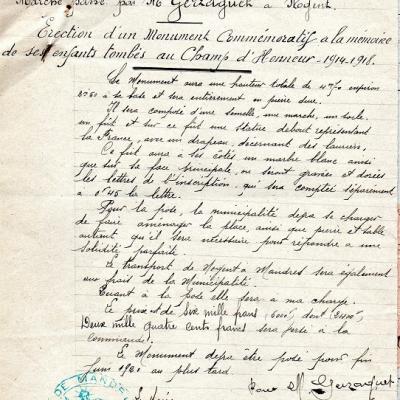 Marché passé par Mr Gerzaguet à Nogent.
Erection d'un Monument Commémoratif à la mémoire
de ses enfants tombés au Champ d'Honneur - 1914-1918.
Le Monument aura une hauteur totale de 4m/0 environ
à sa base et sera entièrement en pierre dure.
Il sera composé d'une semelle, une marche, un socle,
un fût et sur ce fût une statue debout représentant
la France, avec un drapeau, décernant des lauriers,
Ce fût aura à ses côtés un marbre blanc ainsi
que sur sa face principale, où seront gravées et dorées
les lettres de l'inscription, qui sera comptée séparément
à la lettre.
Pour la pose, la municipalité devra se charger
de faire aménager la place, ainsi que pierre et sable
autant qu'il sera nécessaire pour répondre à une
solidité parfaite.
Le transport de Nogent à Mandres sera également
aux frais de la Municipalité.
Quant à la pose elle sera à ma charge.
Ce prix est de Six mille francs 6000f dont 2400f
Deux mille quatre cents francs sera versé à la
commande.
Le Monument devra être posé pour fin
Juin au plus tard.
DE MANDRES
Pour Mr Gerzaguet